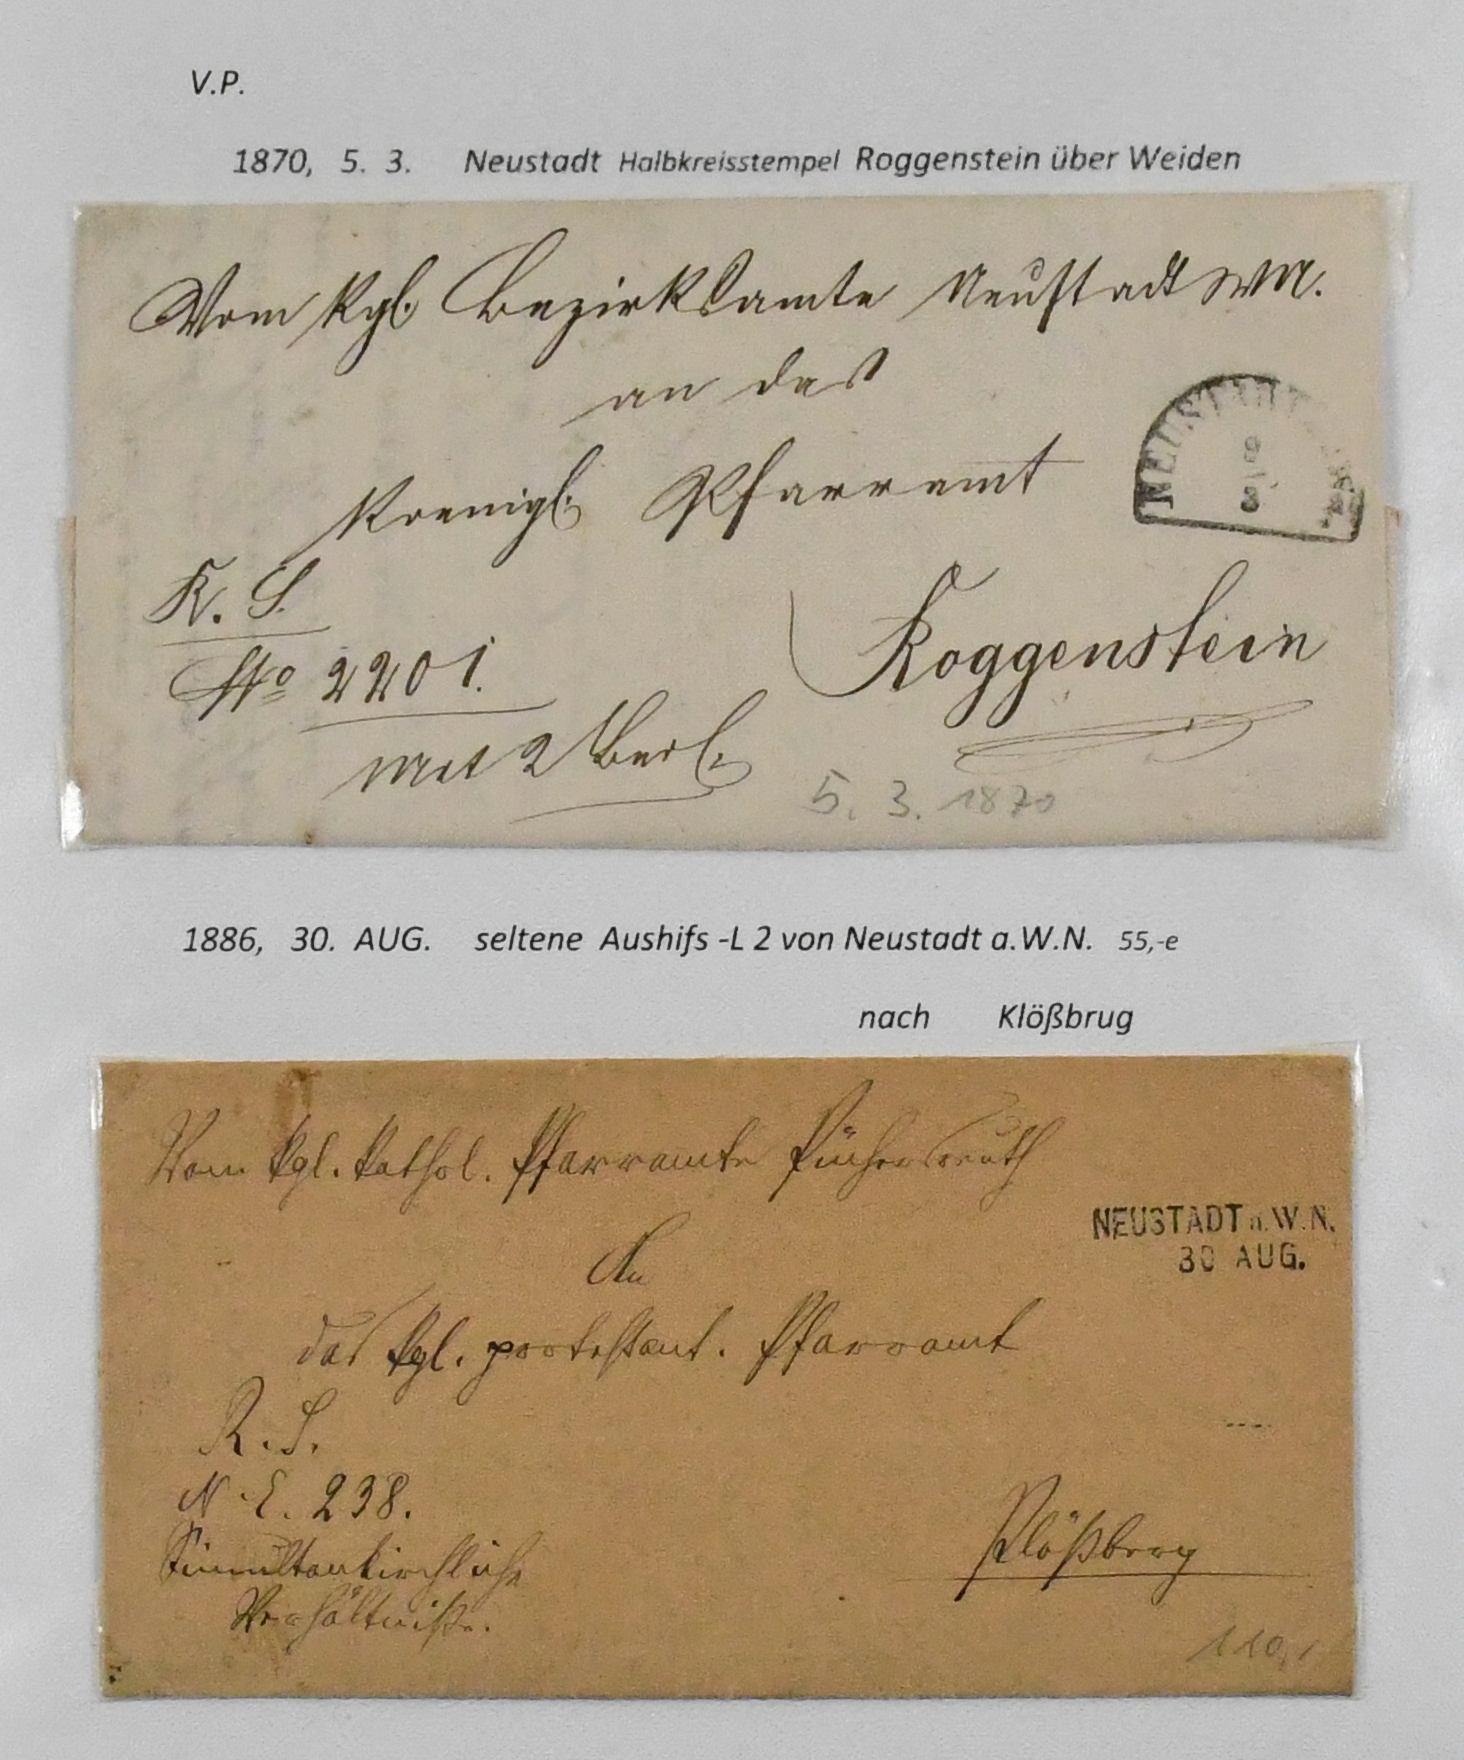 V.P.
1870, 5. 3. Neustadt Halbkreisstempel Roggenstein über Weiden
Vom Kgl. Bezirksamte Neustadt WN.
an das
Koenigl. Pfarramt
NEUSTADT
9
3
K. S.
No 2201.
Roggenstein
mit 2 Beil.
5. 3. 1870
1886, 30. AUG. seltene Aushifs -L 2 von Neustadt a.W.N. 55,-e
nach Klößbrug
Vom kgl. kathol. Pfarramte Püchersreuth
An
das kgl. protestant. Pfarramt
NEUSTADT a.W.N.
30 AUG.
R. S.
N. E. 238.
Simultankirchliche
Verhältniße.
Plößberg
110,-